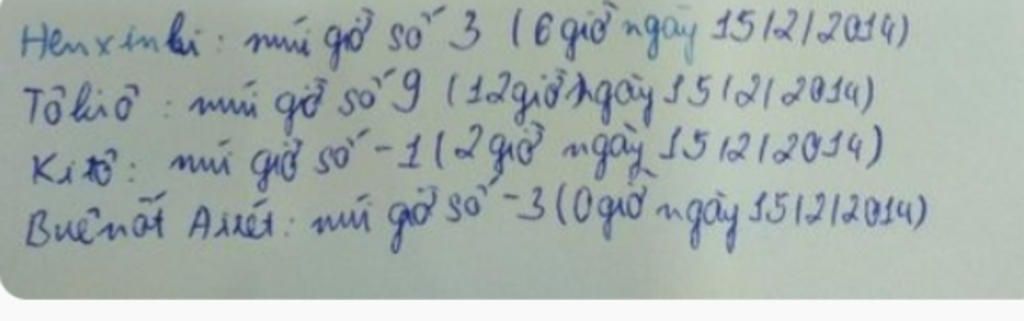 Henxinki: múi giờ số 3 (6 giờ ngày 15/2/2014)
Tôkiô: múi giờ số 9 (12 giờ ngày 15/2/2014)
Kitô: múi giờ số -1 (2 giờ ngày 15/2/2014)
Buênốt Airét: múi giờ số -3 (0 giờ ngày 15/2/2014)